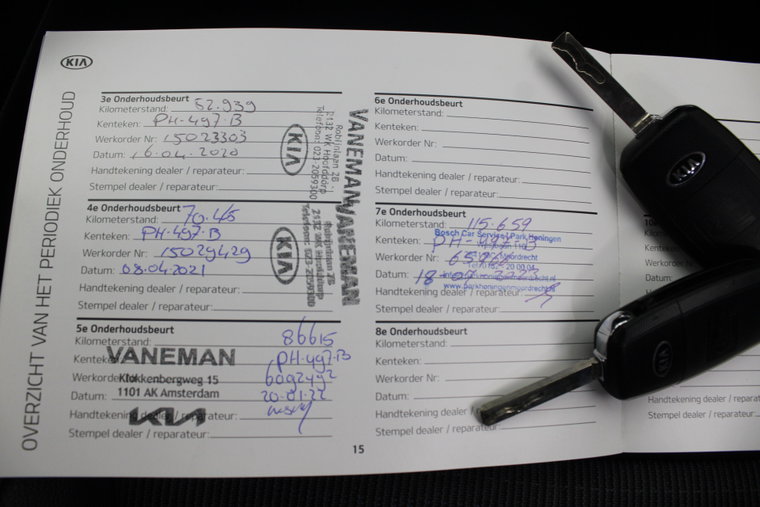 KIA
OVERZICHT VAN HET PERIODIEK ONDERHOUD
3e Onderhoudsbeurt
Kilometerstand: 52.939
Kenteken: PH-497-B
Werkorder Nr: 15023303
Datum: 16.04.2020
Handtekening dealer / reparateur:
Stempel dealer / reparateur:
VANEMAN
Robijnlaan 2B
2132 WX Hoofddorp
Telefoon: 023-2059300
KIA
4e Onderhoudsbeurt
Kilometerstand:
Kenteken: PH-497-B
Werkorder Nr: 15029429
Datum: 08.04.2021
Handtekening dealer / reparateur:
Stempel dealer / reparateur:
VANEMAN
Robijnlaan 2B
2132 WX Hoofddorp
Telefoon: 023-2059300
KIA
5e Onderhoudsbeurt
Kilometerstand: 86615
Kenteken: PH-497-B
Werkorder
Datum: 20-01-22
Handtekening dealer / reparateur:
Stempel dealer / reparateur:
VANEMAN
Klokkenbergweg 15
1101 AK Amsterdam
KIA
15
6e Onderhoudsbeurt
Kilometerstand:
Kenteken:
Werkorder Nr:
Datum:
Handtekening dealer / reparateur:
Stempel dealer / reparateur:
7e Onderhoudsbeurt
Kilometerstand: 115.659
Kenteken: PH-497-B
Werkorder Nr:
Datum: 18
Handtekening dealer / reparateur:
Stempel dealer / reparateur:
Bosch Car Service Park Honingen
8e Onderhoudsbeurt
Kilometerstand:
Kenteken:
Werkorder Nr:
Datum:
Handtekening
Stempel dealer / reparateur:
KIA
KIA